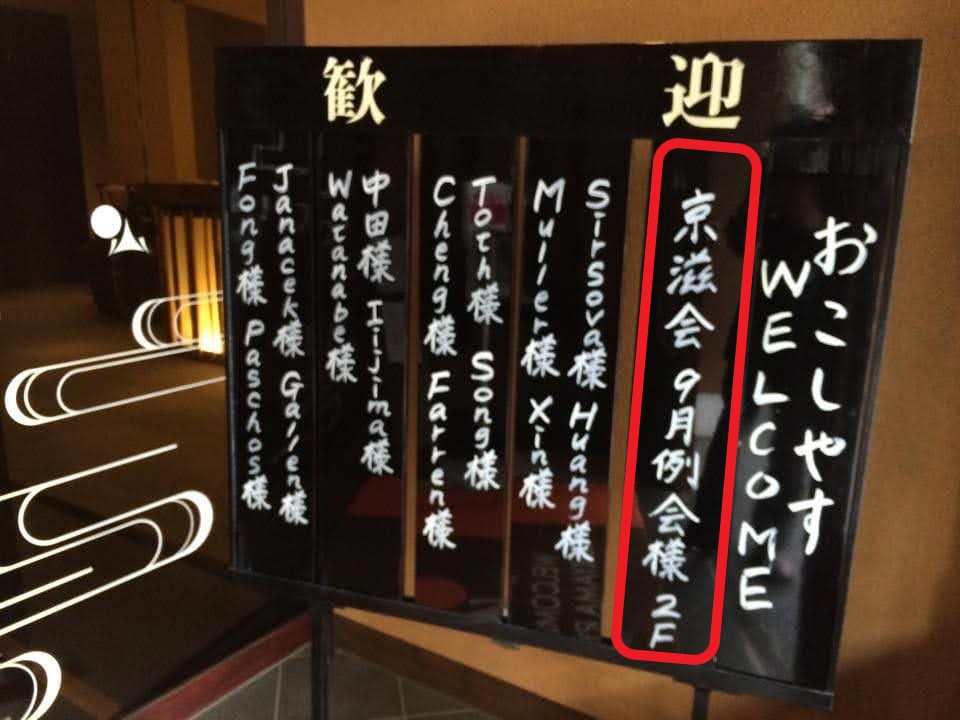 歓迎
おこしやす
WELCOME
京滋会 9月例会様 2F
Sirsova様 Huang様
Muller様 Xin様
Toth様 Song様
Cheng様 Farren様
中田様 Iijima様
Watanabe様
Janacek様 Gallen様
Fong様 Paschos様